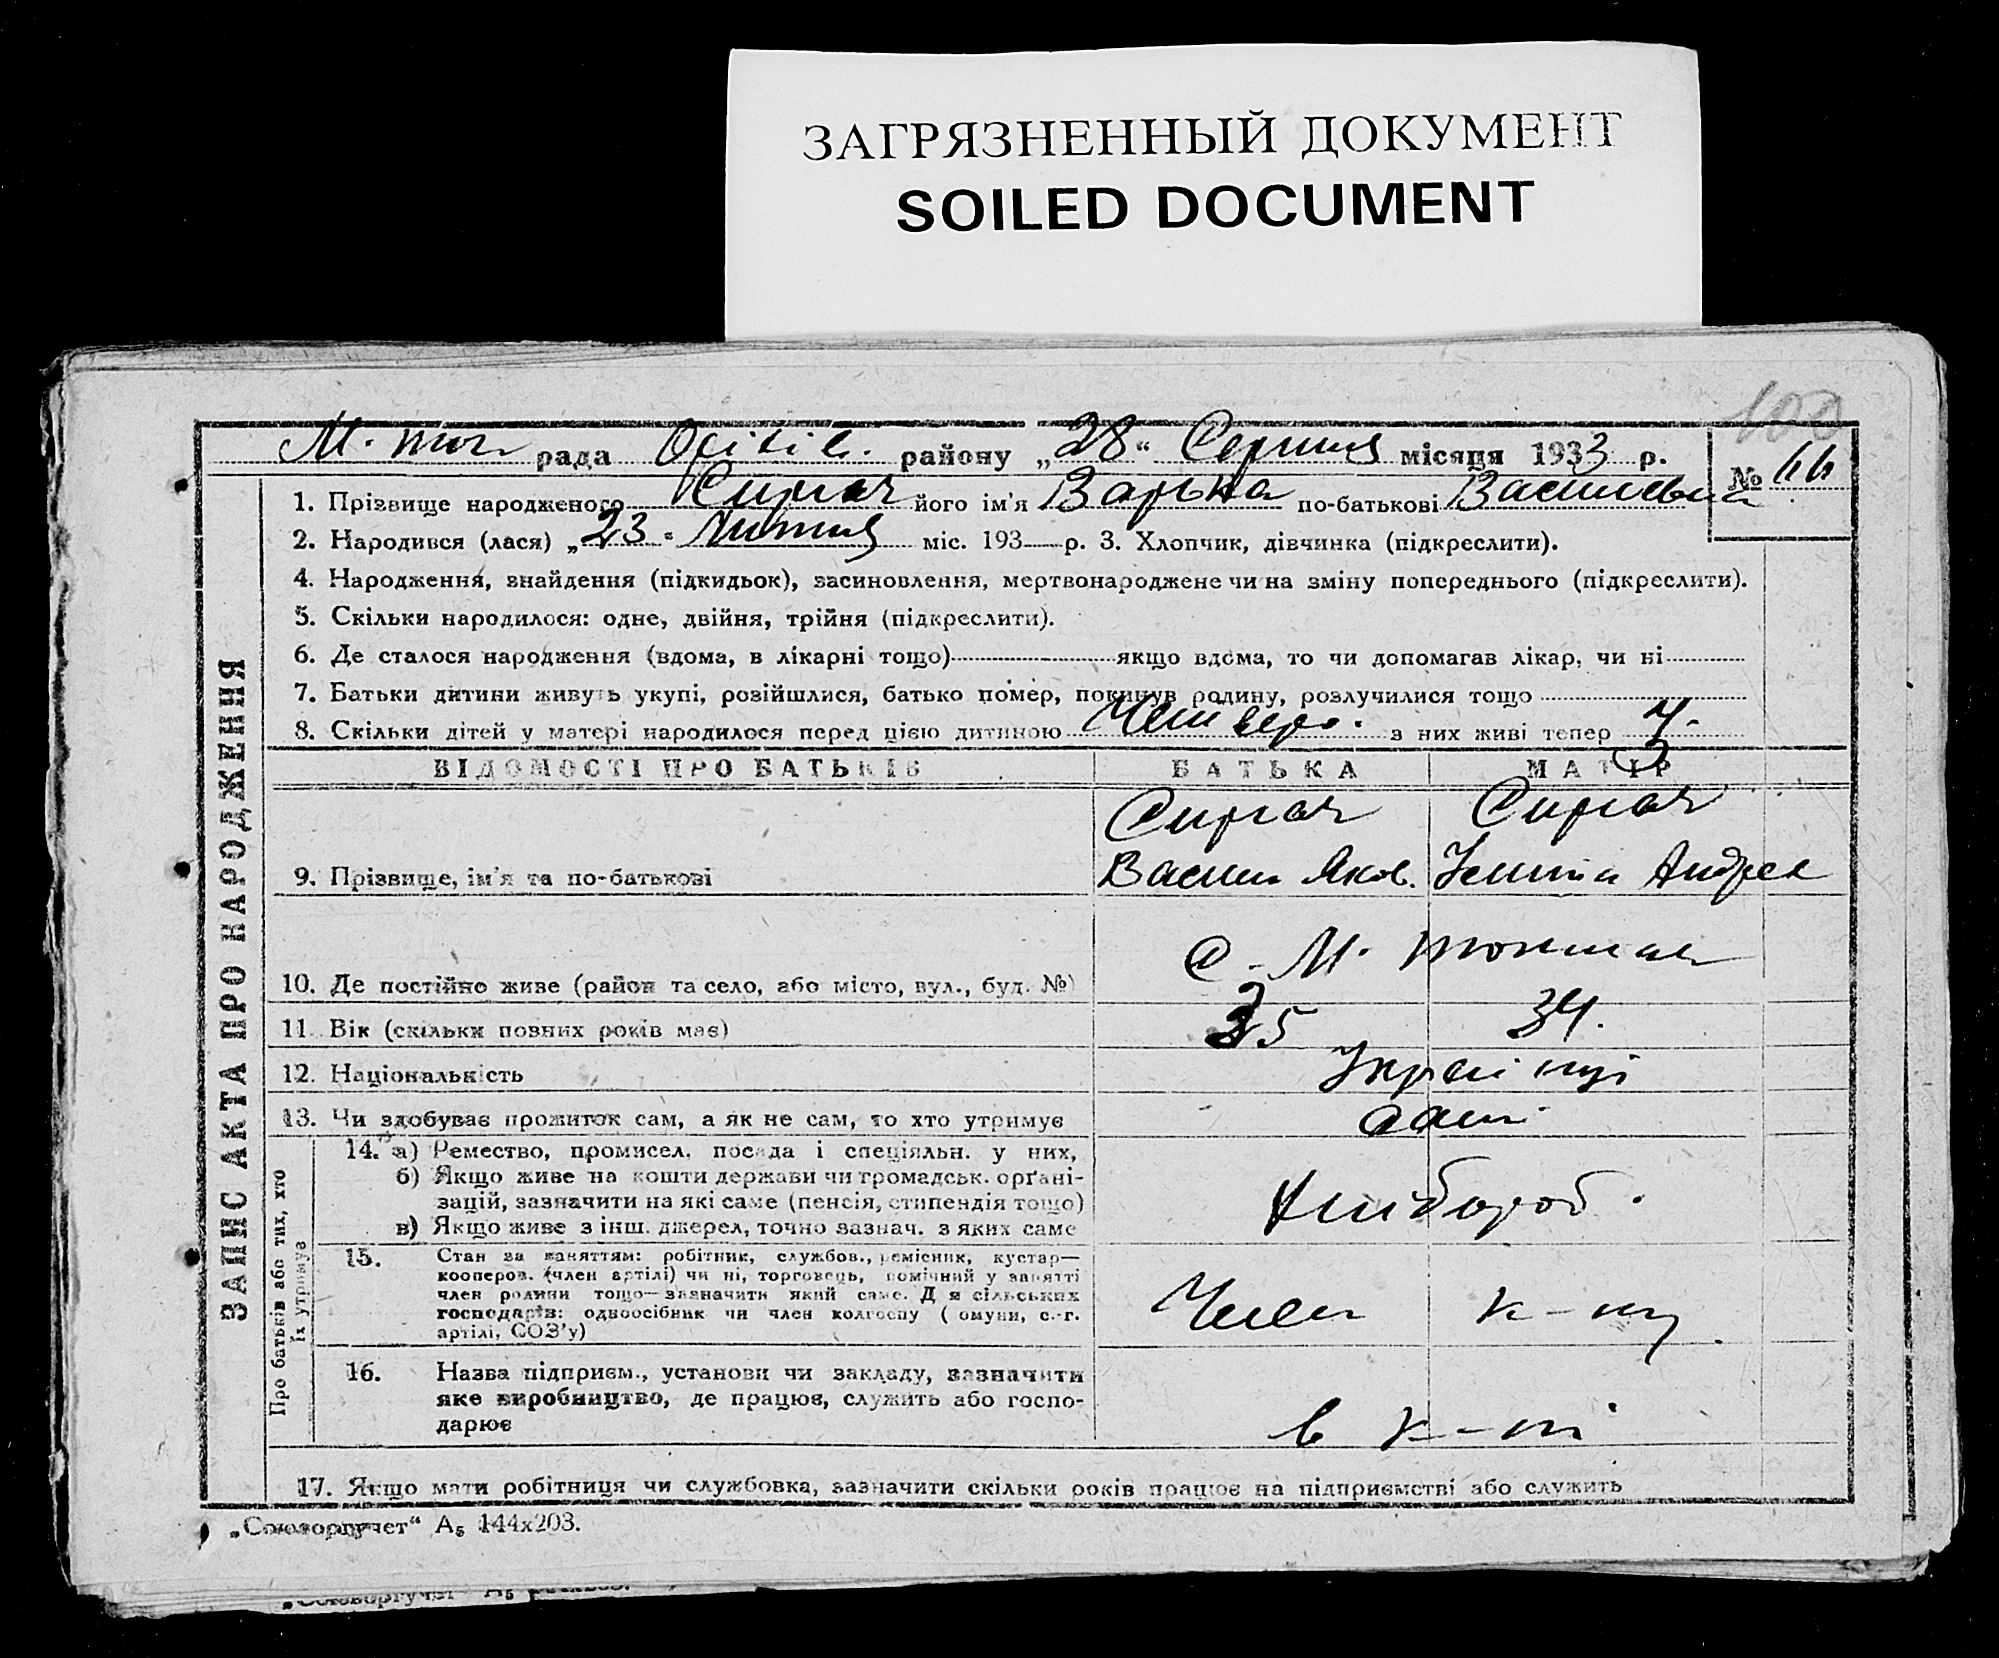 ЗАГРЯЗНЕННЫЙ ДОКУМЕНТ
SOILED DOCUMENT
100
рада району „28“ Серпня місяця 1933 р.
№ 66
1. Прізвище народженого Сиргач його ім'я Варька по-батькові Василевна
2. Народився (лася) „23“ Липня міс. 193 р. 3. Хлопчик, дівчинка (підкреслити).
4. Народження, знайдення (підкидьок), засиновлення, мертвонароджене чи на зміну попереднього (підкреслити).
5. Скільки народилося: одне, двійня, трійня (підкреслити).
6. Де сталося народження (вдома, в лікарні тощо) якщо вдома, то чи допомагав лікар, чи ні
7. Батьки дитини живуть укупі, розійшлися, батько помер, покинув родину, розлучилися тощо
8. Скільки дітей у матері народилося перед цією дитиною Четверо. з них живі тепер
ВІДОМОСТІ ПРО БАТЬКІВ БАТЬКА МАТІР
Сиргач Сиргач
9. Прізвище, ім'я та по-батькові Василь Яков. Андрее
10. Де постійно живе (район та село, або місто, вул., буд. №) с. М.
11. Вік (скільки повних років має) 35 34.
12. Національність Українці
13. Чи здобуває прожиток сам, а як не сам, то хто утримує сами
14. а) Ремество, промисел, посада і спеціяльн. у них,
б) Якщо живе на кошти держави чи громадськ. орґані-
зацій, зазначити на які саме (пенсія, стипендія тощо)
в) Якщо живе з інш. джерел, точно зазнач. з яких саме
Хлібороб.
15. Стан за заняттям: робітник, службов., ремісник, кустар—
кооперов. (член артілі) чи ні, торговець, помічний у занятті
член родини тощо—зазначити який саме. Для сільських
господарів: одноосібник чи член колгоспу (комуни, с.-г.
артілі, СОЗ'у)
Член к-пу
16. Назва підприєм., установи чи закладу, зазначити
яке виробництво, де працює, служить або госпо-
дарює
в к-пі
17. Якщо мати робітниця чи службовка, зазначити скільки років працює на підприємстві або служить
ЗАПИС АКТА ПРО НАРОДЖЕННЯ
Про батьків або тих, хто
їх утримує
„Союзоргучет“ А₅ 144х203.